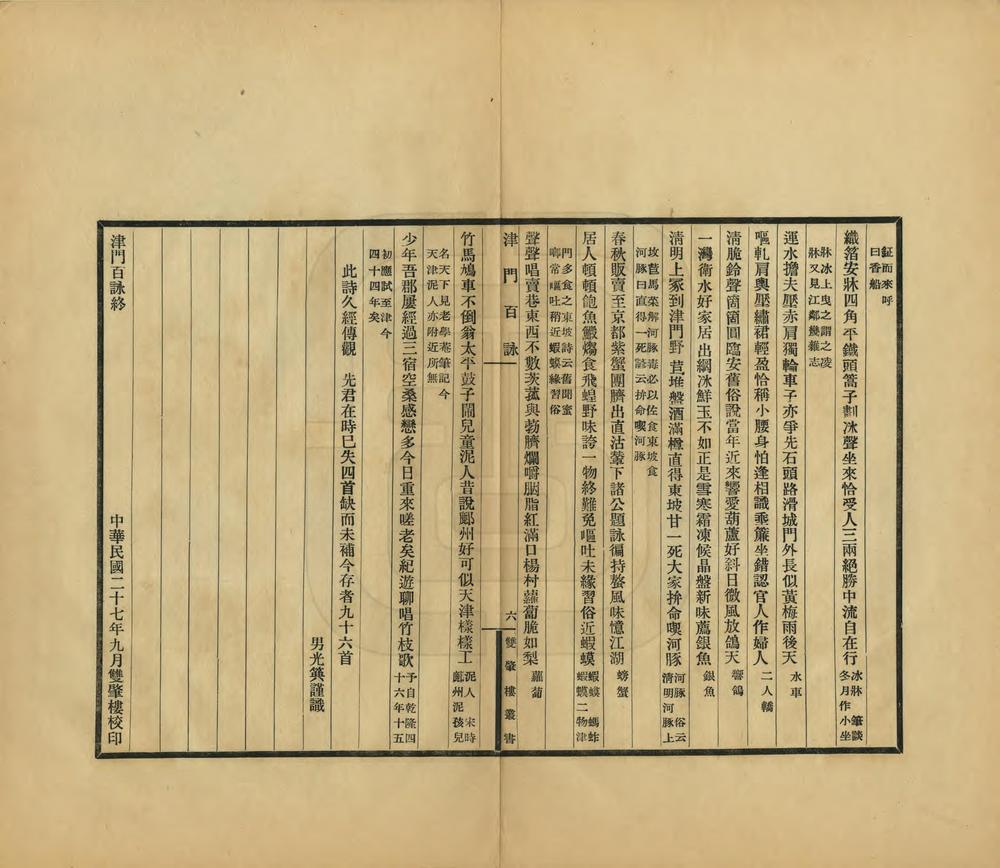 鉦而來呼
曰香船
織箬安牀四角平鐵頭篙子劃冰聲坐來恰受人三兩絕勝中流自在行 冰牀 筆談
冬月作小坐
牀冰上曳之謂之凌
牀又見江鄰幾雜志
運水擔夫壓赤肩獨輪車子亦爭先石頭路滑城門外長似黃梅雨後天 水車
嘔軋肩輿壓繡裙輕盈恰稱小腰身怕逢相識乖簾坐錯認官人作婦人 二人轎
清脆鈴聲箇箇圓臨安舊俗說當年近來響愛葫蘆好斜日微風放鴿天 響鴿
一灣衛水好家居出網冰鮮玉不如正是雪寒霜凍候晶盤新味薦銀魚 銀魚
清明上冢到津門野苣堆盤酒滿樽直得東坡甘一死大家拚命喫河豚 河豚 俗云
清明河豚上
坟苣馬菜解河豚毒必以佐食東坡食
河豚曰直得一死諺云拚命喫河豚
春秋販賣至京都紫蟹團臍出直沽輦下諸公題詠徧持螯風味憶江湖 螃蟹
居人頓頓飽魚鰕爤食飛蝗野味誇一物終難免嘔吐未緣習俗近蝦蟆 蝦蟆 螞蚱
蝦蟆二物津
門多食之東坡詩云舊聞蜜
唧常嘔吐稍近蝦蟆緣習俗
聲聲唱賣巷東西不數茨菰與葧臍爛嚼胭脂紅滿口楊村蘿蔔脆如梨 蘿蔔
津門百詠
六
雙肇樓叢書
竹馬鳩車不倒翁太平鼓子鬧兒童泥人昔說鄜州好可似天津樣樣工 泥人 宋時
鄜州泥孩兒
名天下見老學菴筆記今
天津泥人亦附近所無
少年吾郡屢經過三宿空桑感戀多今日重來嗟老矣紀遊聊唱竹枝歌 予自乾隆四
十六年十五
初應試至津今
四十四年矣
此詩久經傳觀 先君在時已失四首缺而未補今存者九十六首
男光篊謹識
津門百詠終
中華民國二十七年九月雙肇樓校印